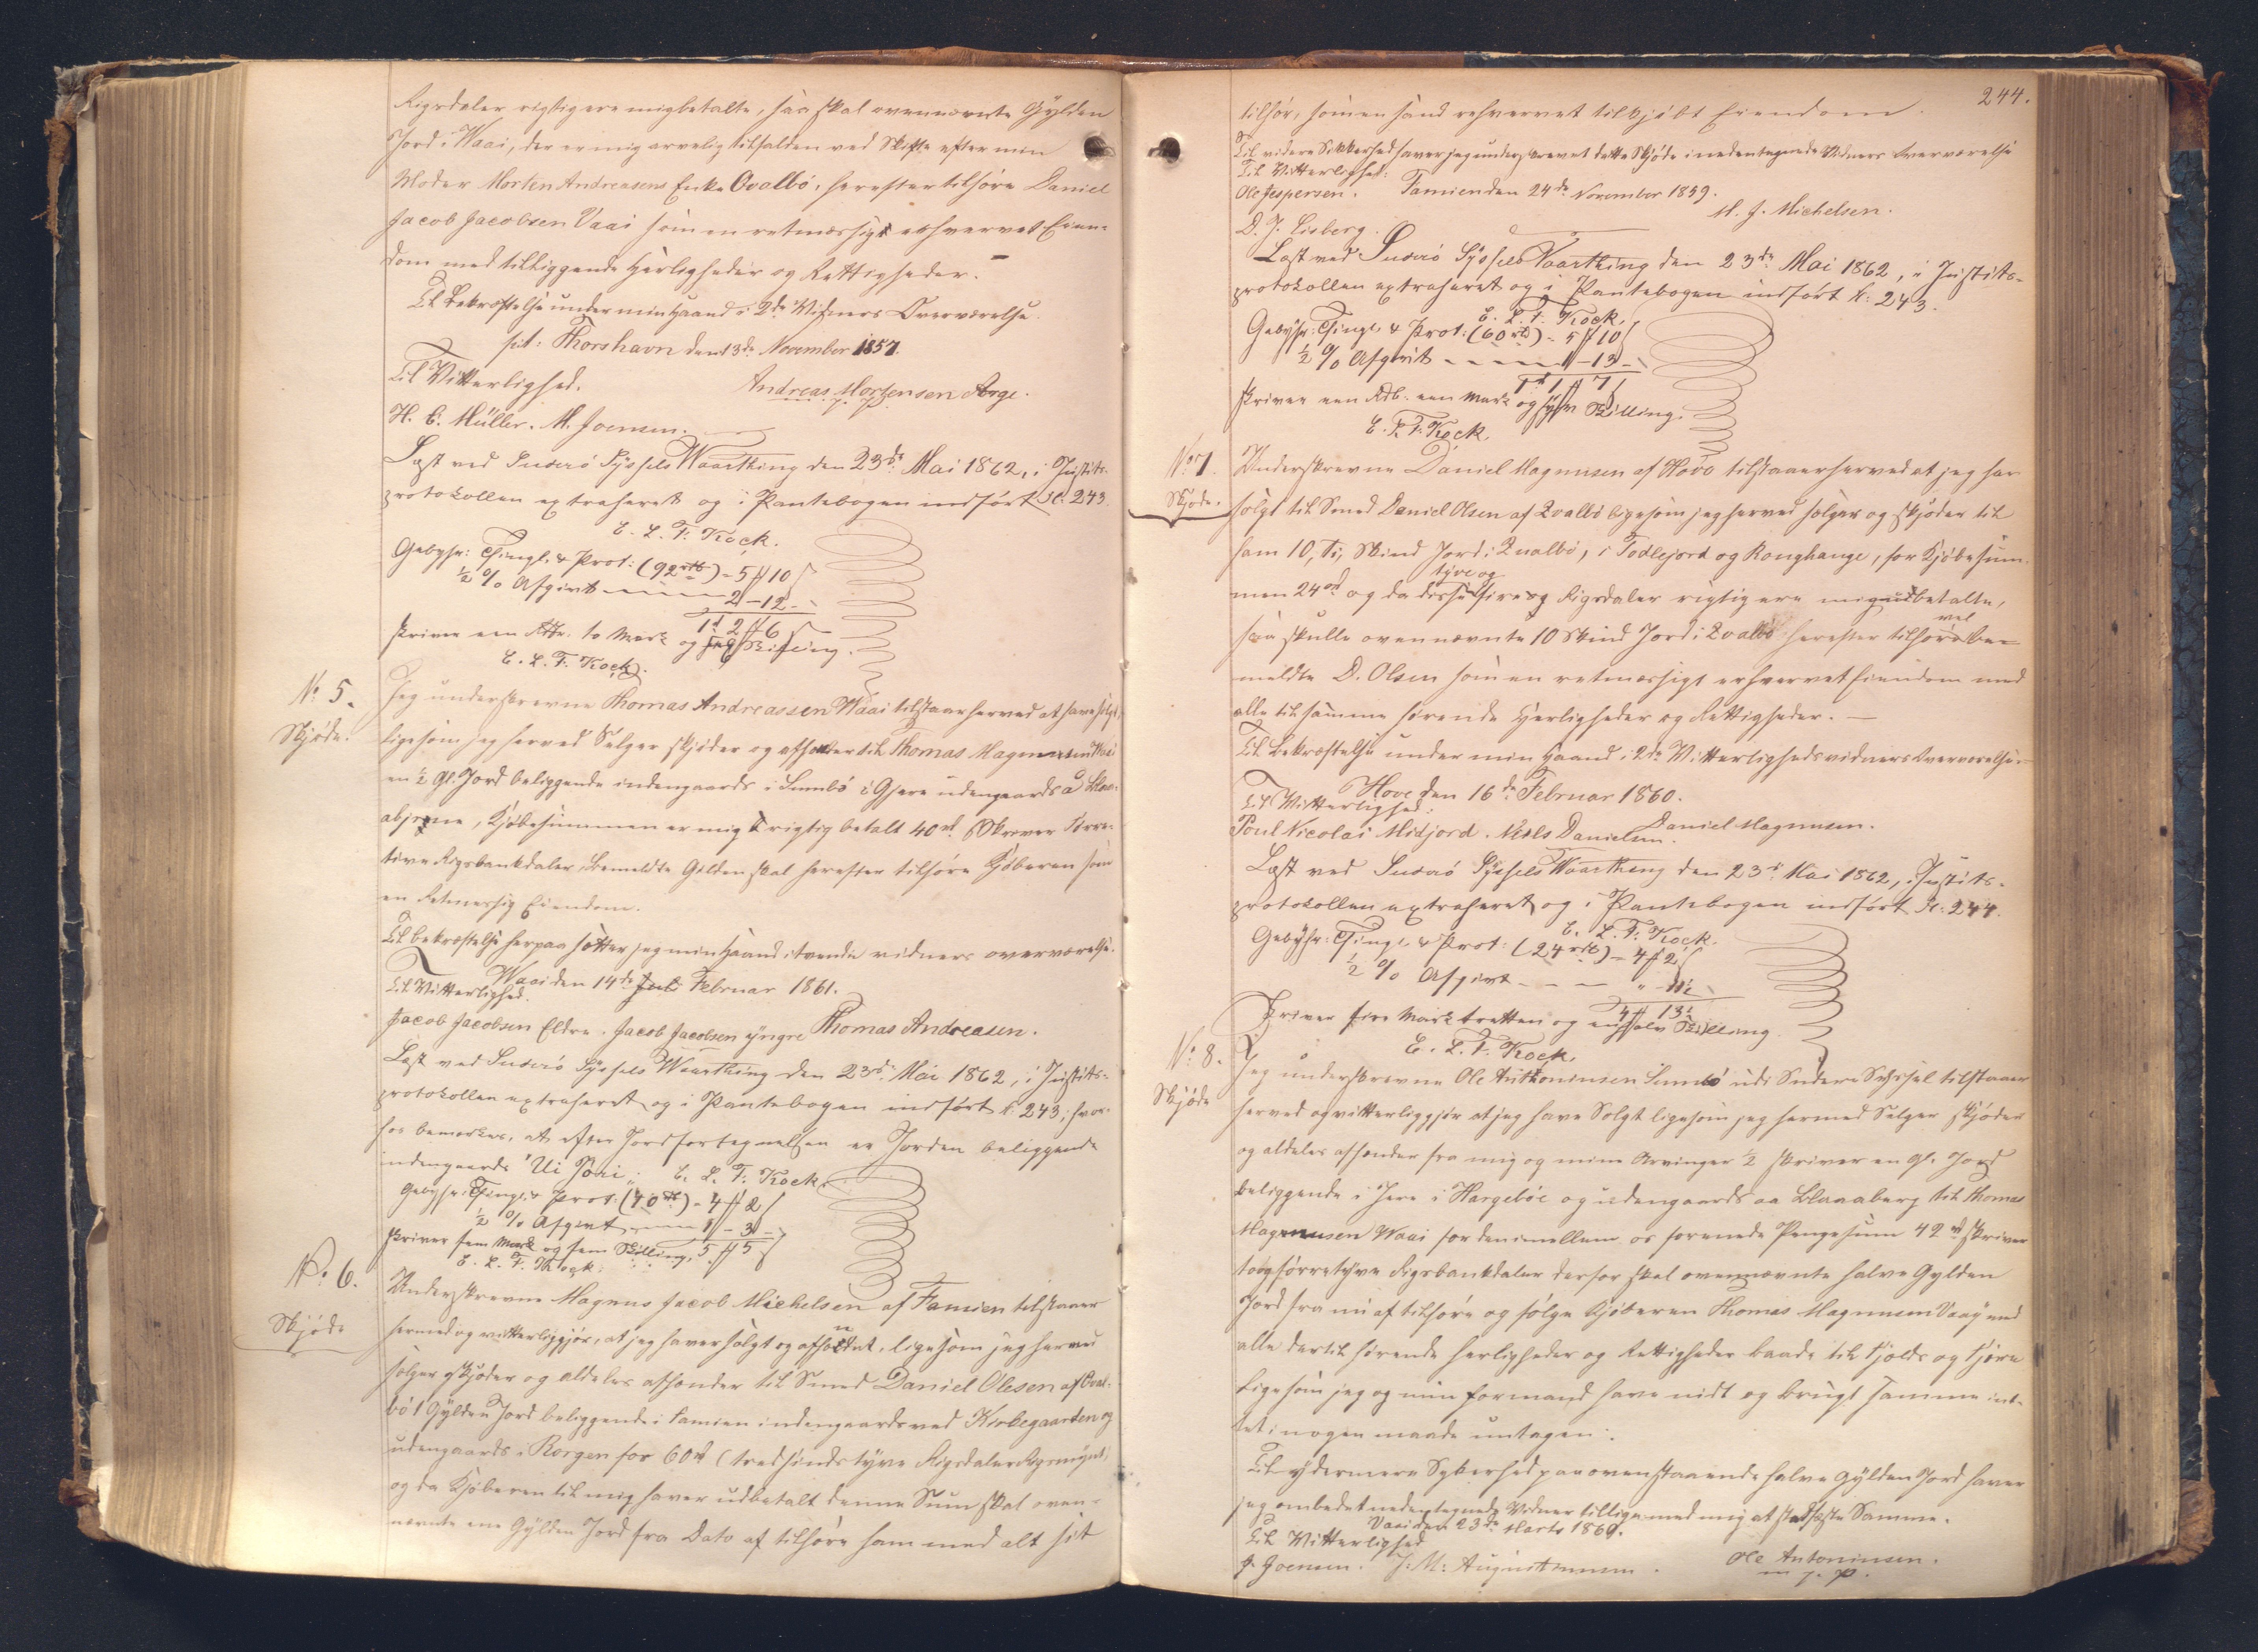 Rigsdaler rigtig ere mig betalte, saa skal ovennævnte Gylden
Jord i Waai, der er mig arvelig tilfalden ved Skifte efter min
Moder Morten Andreasens Enke Qvalbö, herefter tilhøre Daniel
Jacob Jacobsen Vaai som en retmæssigt erhvervet Eien-
dom med tilliggende Herligheder og Rettigheder. —
Til Bekræftelse under min Haand i 2de Vidners Overværelse.
pt: Thorshavn den 13de November 1857.
Til Vitterlighed. Andreas Mortensen Arge.
H. C. Müller. M. Joensen. m. f. P.
Læst ved Suderö Syssels Vaarthing den 23de Mai 1862, i Justits-
protokollen extraheret og i Pantebogen indført Fl: 243.
E. L. T. Kock.
Gebyhr: Thingl. & Prot: (92 rd) = 5 # 10 ß
½ % Afgivt — — — 2 – 12 –
1 rd 2 # 6 ß
skriver een Rdlr. to Mark og sex Skilling.
E. L. T. Kock.
No 5.
Skjøde.
Jeg underskrevne Thomas Andreassen Waai tilstaar herved at have solgt,
ligesom jeg herved Sælger skjøder og afhænder til Thomas Magnussen Waai
en ½ Gl. Jord beliggende indengaards i Sumbö i Gjera udengaards
, Kjøbesummen er mig rigtig betalt 40 rd. Skriver Førre-
tive Rigsbankdaler, bemeldte Gilden skal herefter tilhøre Kjøberen som
en Retmessig Eiendom.
Til bekræftelse herpaa sætter jeg min Haand i tvende vidners overværelse.
Waai den 14de Februar 1861.
Til Vitterlighed.
Jacob Jacobsen Eldre. Jacob Jacobsen yngre Thomas Andreasen.
Læst ved Suderö Syssels Vaarthing den 23de Mai 1862, i Justits-
protokollen extraheret og i Pantebogen indført Fl: 243; hvor-
hos bemærkes, at efter Jordfortegnelsen er Jorden beliggende
indengaards "Ui Pori". E. L. T. Kock.
Gebyhr: Thingl. & Prot: (40 rd) = 4 # 2 ß
½ % Afgivt — — 1 – 3 –
skriver fem Mark og fem Skilling. 5 # 5 ß
E. L. T. Kock.
No 6.
Skjøde
Underskrevne Magnus Jacob Michelsen af Famien tilstaaer
hermed og vitterliggjør, at jeg haver solgt og afhændet, ligesom jeg herved
sælger skjøder og aldeles afhænder til Smed Daniel Olesen af Qval-
bö 1 Gylden Jord beliggende i Famien indengaards ved Kirkegaarden og
udengaards i Rorgen for 60 rd (tredsindstyve Rigsdaler Rigsmynt)
og da Kjøberen til mig haver udbetalt denne Sum skal oven-
nævnte ene Gylden Jord fra Dato af tilhøre ham med alt sit
244.
tilhør, som en sand rehvervet tilkjøbt Eiendom.
Til videre Sikkerhed haver jeg underskrevet dette Skjøde i nedentegnede Vidners Overværelse
Til Vitterlighed:
Ole Jespersen. Famien den 24de November 1859.
M. J. Michelsen.
D. J. Eisberg.
Læst ved Suderö Syssels Vaarthing den 23de Mai 1862, i Justits-
protokollen extraheret og i Pantebogen indført Fl: 243.
E. L. T. Kock.
Gebyhr: Thingl. & Prot: (60 rd) = 5 # 10 ß
½ % Afgivt — — — 1 – 13 –
1 rd 1 # 7 ß
skriver een Rdl. een Mark og syv Skilling.
E. L. T. Kock.
No 7.
Skjøde.
Underskrevne Daniel Magnusen af Hovo tilstaaer herved at jeg har
solgt til Smed Daniel Olsen af Qvalbö ligesom jeg herved sælger og skjøder til
ham 10, ti, Skind Jord i Qvalbö, i Todlejord og Ronghange, for Kjøbesum-
men 24 rd og da disse tyve og fire Rigsdaler rigtig ere mig betalte,
saa skulle ovennævnte 10 Skind Jord i Qvalbö herefter tilhøre vel be-
meldte D. Olsen som en retmæssigt erhvervet Eiendom med
alle til samme hørende Herligheder og Rettigheder. —
Til Bekræftelse under min Haand i 2de Vitterlighedsvidners Overværelse.
Hove den 16de Februar 1860.
Til Vitterlighed:
Daniel Magnusen.
Poul Nicolai Midjord. Niels Danielsen.
Læst ved Suderö Syssels Vaarthing den 23de Mai 1862, i Justits-
protokollen extraheret og i Pantebogen indført Fl: 244.
E. L. T. Kock.
Gebyhr: Thingl. & Prot: (24 rd) = 4 # 2 ß
½ % Afgivt — — — " – 11½
4 # 13½
skriver fire Mark tretten og en halv Skilling.
E. L. T. Kock.
No 8.
Skjøde
Jeg underskrevne Ole Anthoninsen Sumbö udi Suderö Syssel tilstaaer
herved og vitterliggjør at jeg have Solgt ligesom jeg hermed Sælger skjøder
og aldeles afhænder fra mig og mine Arvinger ½ skriver en Gl. Jord
beliggende i Jere i Hargeböe og udengaards aa Blaaaberg til Thomas
Magnussen Waai for den imellem os forenede Pengesum 42 rd skriver
to og førretyve Rigsbankdaler derfor skal ovennævnte halve Gylden
Jord fra nu af tilhøre og følge Kjøberen Thomas Magnussen Vaag med
alle dertil hørende herligheder og Rettigheder baade til Fjelds og Fjære
ligesom jeg og min Formand have nidt og brugt Samme int-
tet i nogen maade untagen.
Til ydermere Sykerhed paa ovenstaaende halve Gylden Jord haver
jeg ombedet nedentegnede Vidner tillige med mig at stadfæste Samme.
Vaai den 23de Marts 1860.
Til Vitterlighed
J. Joensen. J. M. Augustinusen. Ole Antoninsen.
m. f. P.